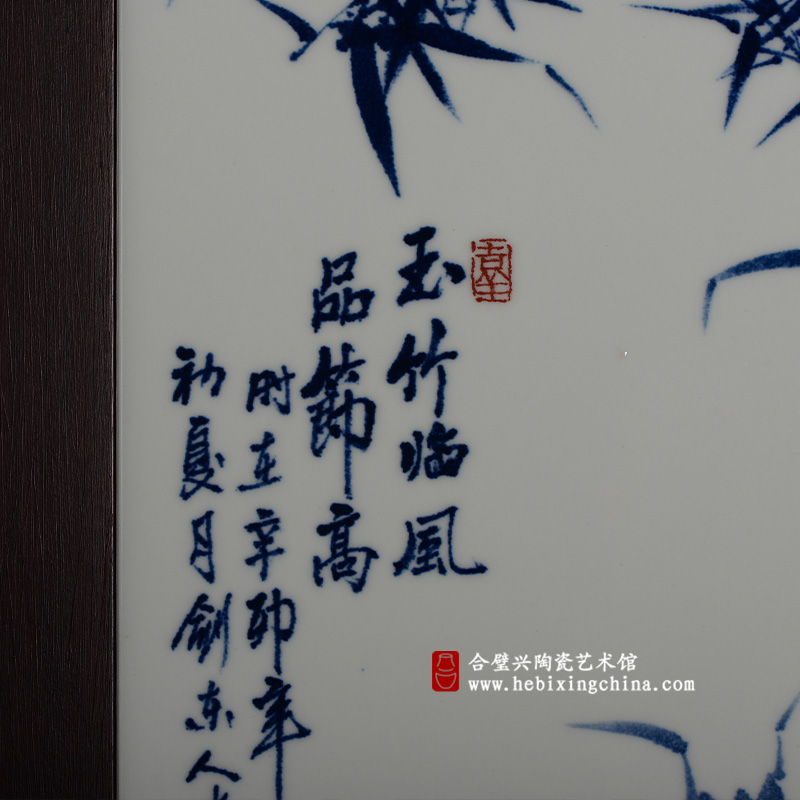 玉竹临風
品節高
时在辛卯年
初夏月劍东人
合璧兴陶瓷艺术馆
www.hebixingchina.com